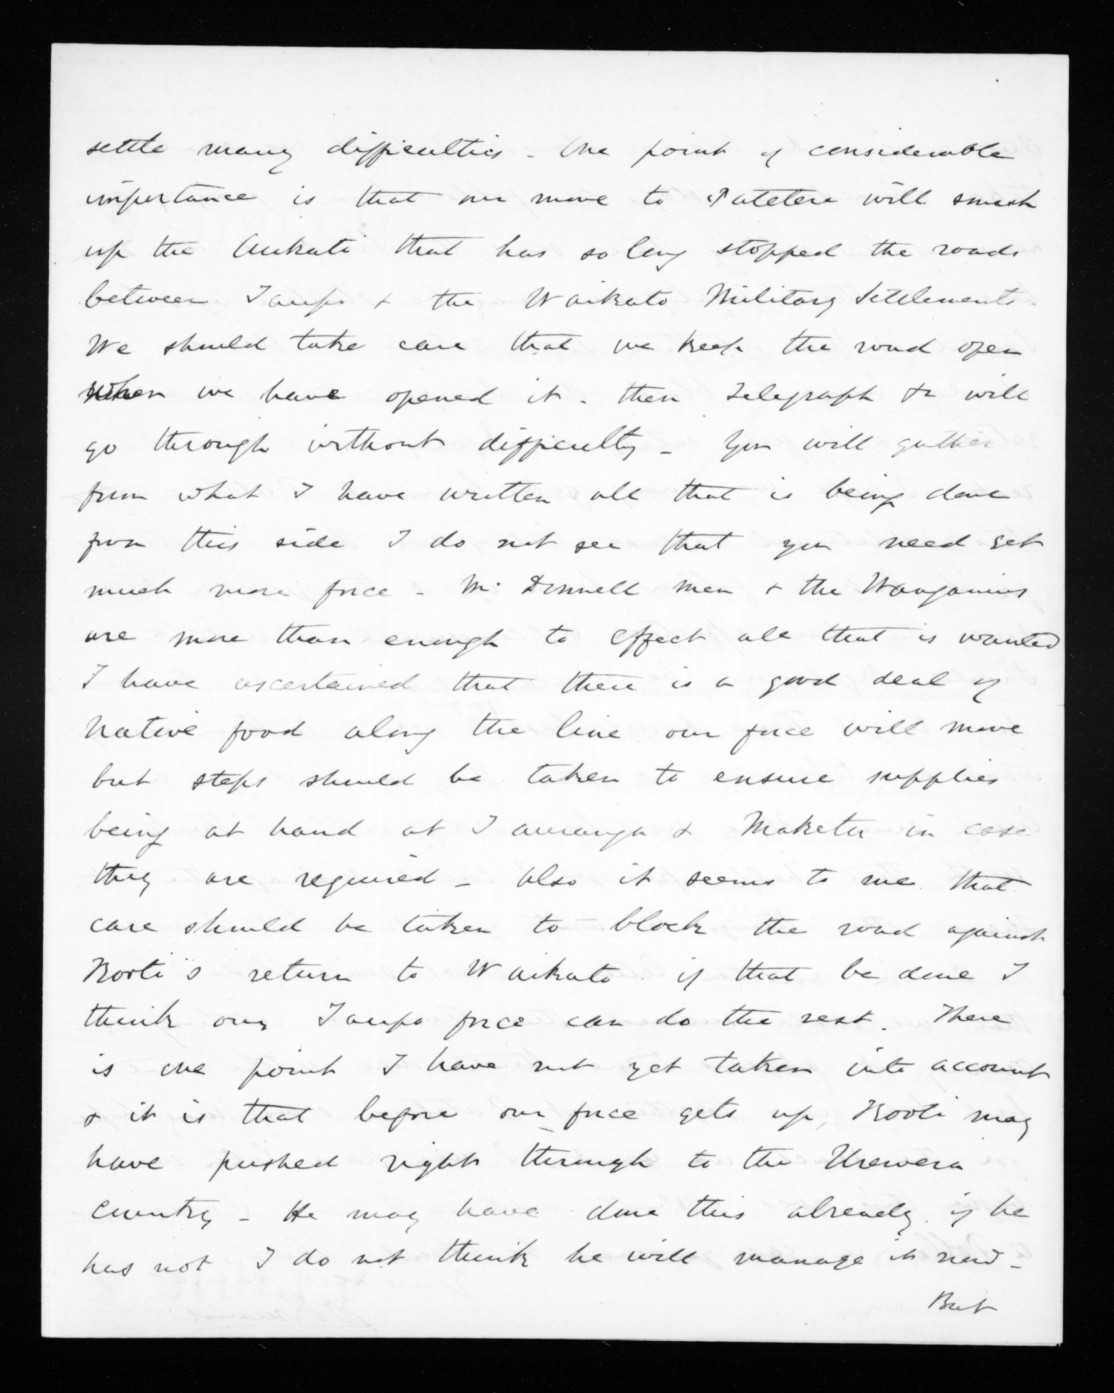 settle many difficulties - One point of considerable
importance is that our move to Patetere will smash
up the Aukati that has so long stopped the roads
between Taupo & the Waikato Military Settlements.
We should take care that we keep the road open
when we have opened it - then Telegraph &c will
go through without difficulty - You will gather
from what I have written all that is being done
from this side I do not see that you need get
much more force - McDonnell men & the Wanganuis
are more than enough to effect all that is wanted
I have ascertained that there is a good deal of
Native food along the line our force will move
but steps should be taken to ensure supplies
being at hand at Tauranga & Maketu in case
they are required - Also it seems to me that
care should be taken to block the road against
Kooti's return to Waikato if that be done I
think our Taupo force can do the rest. There
is one point I have not yet taken into account
& it is that before our force gets up, Kooti may
have pushed right through to the Urewera
Country - He may have done this already, if he
has not I do not think he will manage it now -
But